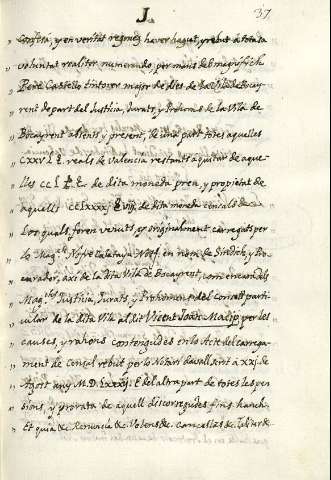 J.
37
„ confesa, y en veritat regoneg haver hagut, y rebut a tota ta
„ voluntat realiter numerando, per mans del magnifich
„ Pere Castello sindich major de dies de la Vila de Bocay
„ rent de part del Justicia, Jurats, y Prohomens de la Vila de
„ Bocayrent absents, y presents, de una part totes aquelles
„ CXXV L. E. reals de Valencia restants a quitar de aque-
„ lles CC L. E. de dita moneda preu, y propietat de
„ aquells CCLxxxj de dita moneda censals de
„ los quals, foren venuts, y originalment carregats per
„ lo Mag.ch Nofre Calataya Notj. en nom de Sindich, y Pro
„ curador, axi de la dita Vila de Bocayrent, com encara dels
„ Mag.chs Justicia, Jurats, y Prohomens del Consell parti-
„ cular de la dita Vila al dit Vicent Joan Masip per les
„ causes, y rahons contengudes en lo Acte del carrega-
„ ment de Censal rebut per lo Notari davall scrit a xxj. de
„ Agost any M.D.Lxxxj. E del altra part de totes les pen
„ sions, y prorata de aquell discorregudes fins huach.
„ Et quia &c. Renuncia &c. Volens &c. cancellas &c.